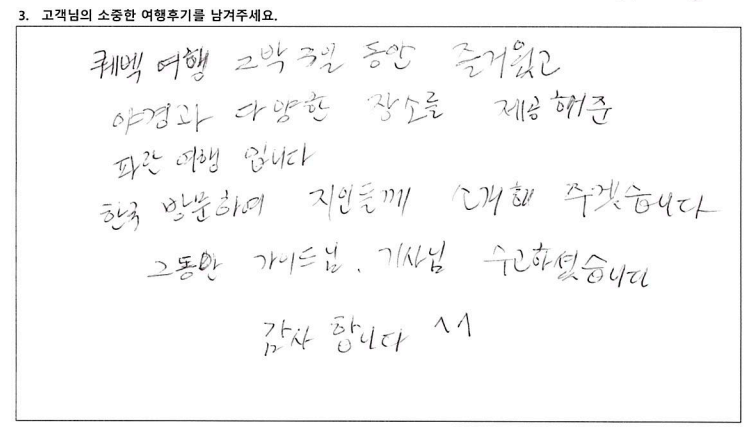 3. 고객님의 소중한 여행후기를 남겨주세요.
퀘벡 여행 2박 3일 동안 즐거웠고
야경과 다양한 장소를 제공해준
파란 여행 입니다
한국 방문하여 지인들께 소개해 주겠습니다
그동안 가이드님, 기사님 수고하셨습니다
감사 합니다 ^^